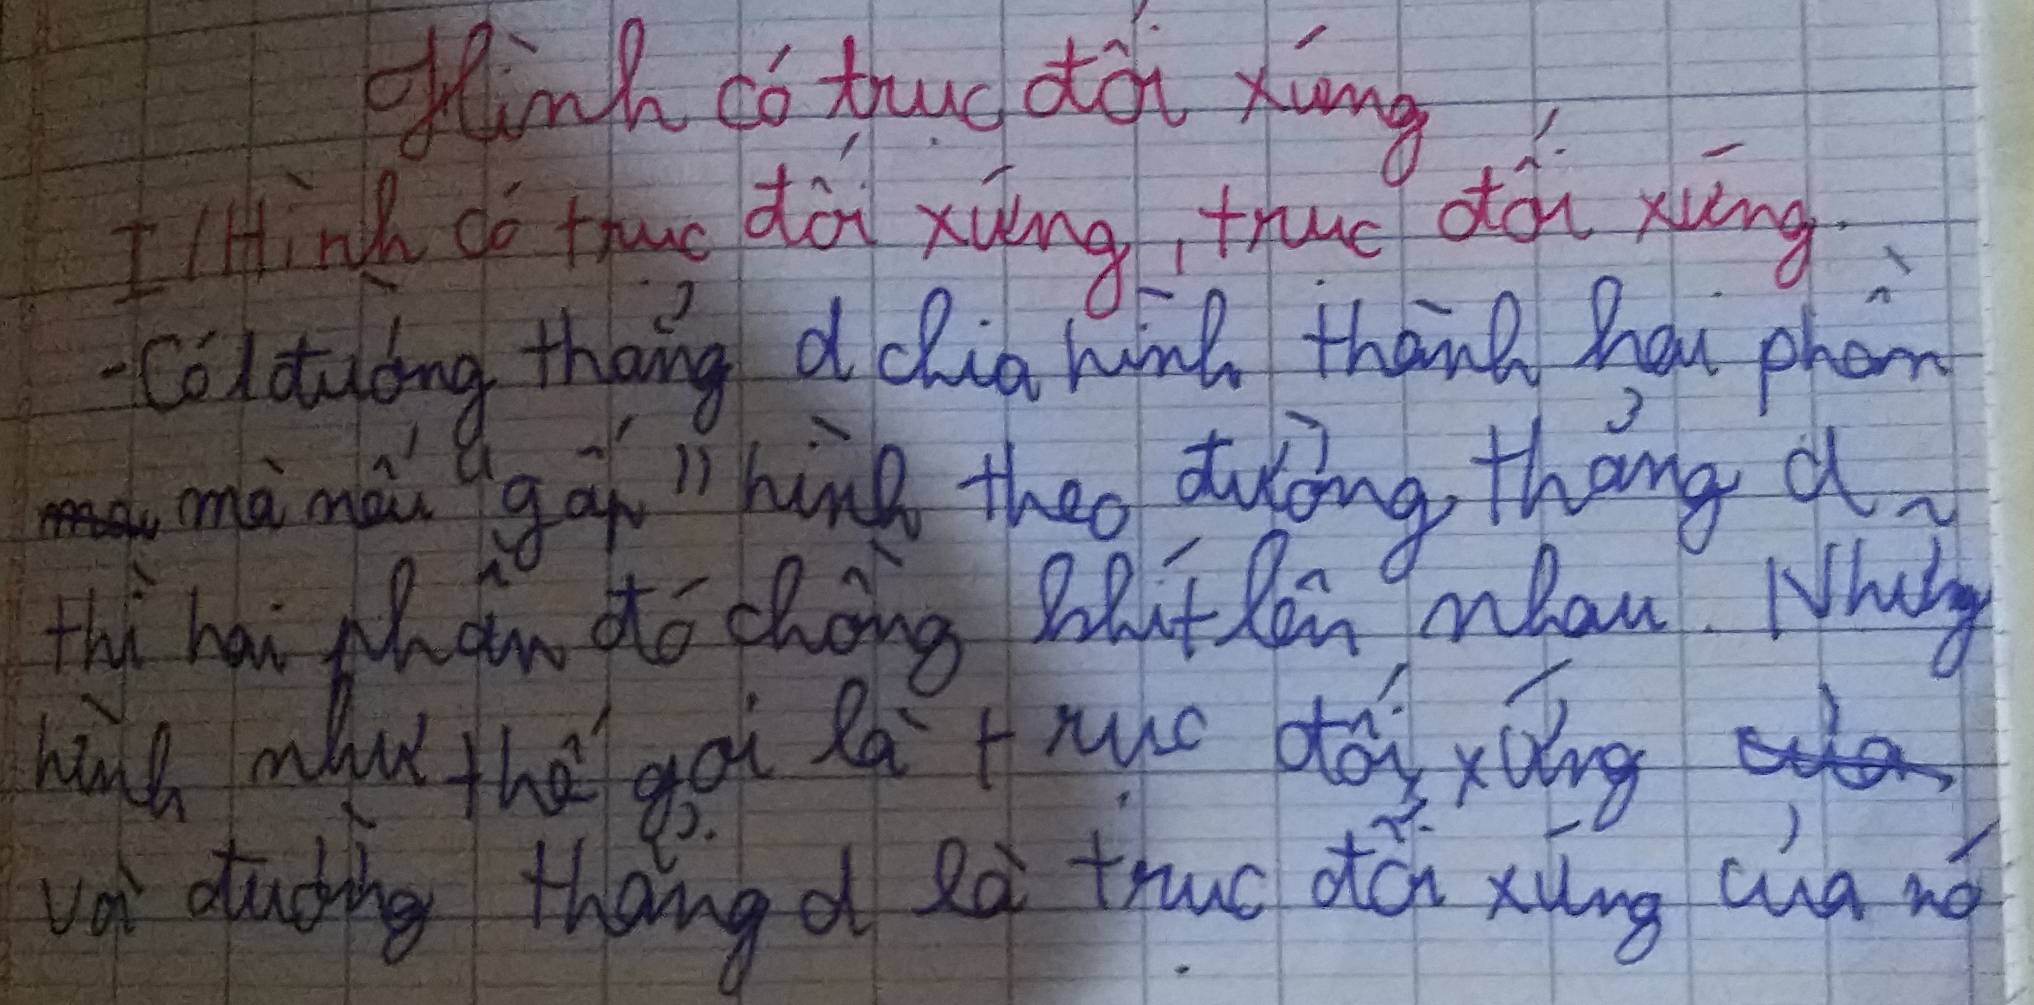 Hình có trục đối xứng
I/Hình có trục đối xứng, trục đối xứng.
-Có 1 đường thẳng d chia hình thành hai phần
mà nếu "gấp" hình theo đường thẳng d
thì hai phần đó chồng khít lên nhau. Những
hình như thế gọi là trục đối xứng
và đường thẳng d là trục đối xứng của nó